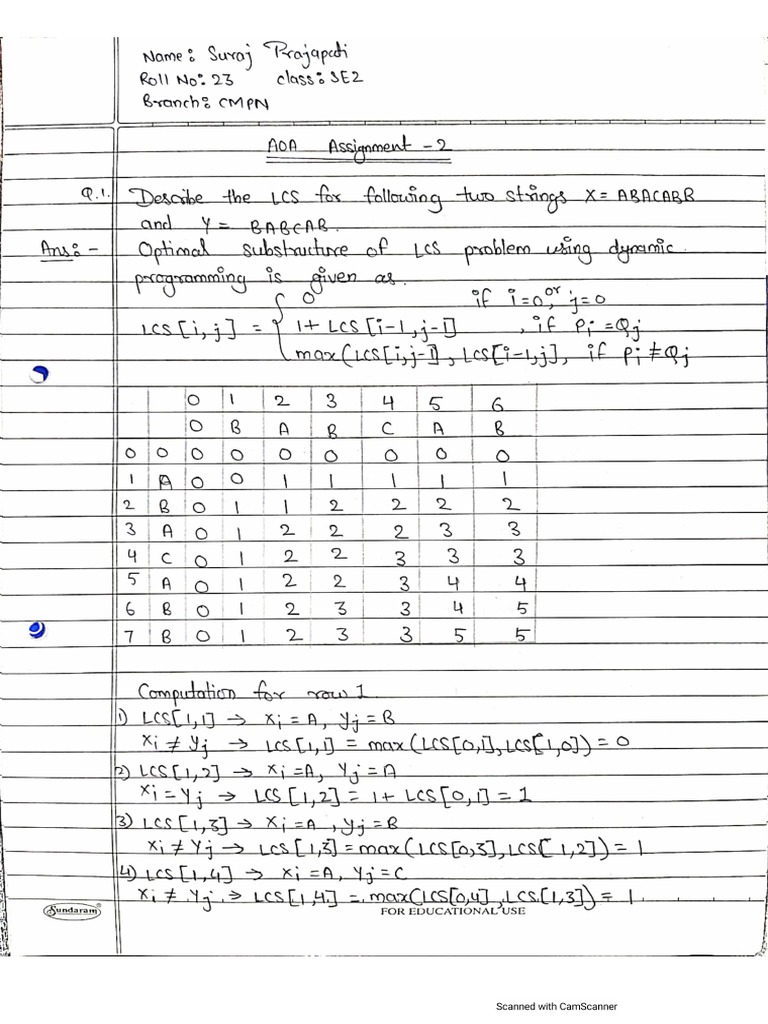 Name: Suraj Prajapati
Roll No: 23 class: SE2
Branch: CMPN
AOA Assignment - 2
Q.1. Describe the LCS for following two strings X= ABACABB
and Y= BABCAB.
Ans:- Optimal substructure of LCS problem using dynamic
programming is given as.
0 if i=0, or j=0
LCS[i,j] = { 1+ LCS[i-1,j-1] , if Pi = Qj
max(LCS[i,j-1], LCS[i-1,j], if Pi ≠ Qj
0 1 2 3 4 5 6
0 B A B C A B
0 0 0 0 0 0 0 0 0
1 A 0 0 1 1 1 1 1
2 B 0 1 1 2 2 2 2
3 A 0 1 2 2 2 3 3
4 C 0 1 2 2 3 3 3
5 A 0 1 2 2 3 4 4
6 B 0 1 2 3 3 4 5
7 B 0 1 2 3 3 5 5
Computation for row 1
1) LCS[1,1] → Xi = A, Yj = B
Xi ≠ Yj → LCS[1,1] = max(LCS[0,1], LCS[1,0]) = 0
2) LCS[1,2] → Xi = A, Yj = A
Xi = Yj → LCS[1,2] = 1+ LCS[0,1] = 1
3) LCS[1,3] → Xi = A, Yj = B
Xi ≠ Yj → LCS[1,3] = max(LCS[0,3], LCS[1,2]) = 1
4) LCS[1,4] → Xi = A, Yj = C
Xi ≠ Yj → LCS[1,4] = max(LCS[0,4], LCS[1,3]) = 1
Sundaram FOR EDUCATIONAL USE
Scanned with CamScanner